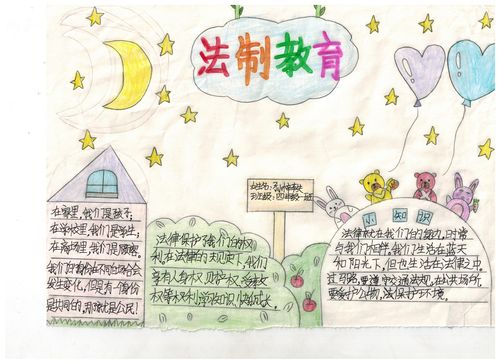 法制教育
在家里,我们是孩子;
在学校里,我们是学生;
在商场里,我们是顾客。
我们的身份在不同的场合会
发生变化,但是有一个身份
是共同的,那就是公民!
法律保护了我们的权
利在法律的规定下,我们
享有人身权、
权等权利学知识快成长。
姓名:
班级:四年级一班
小知识
法律就在我们的身边,时常
与我们相伴。我们生活在蓝天
和阳光下,但也生活在法律之中。
过马路,要遵守交通法规,在公共场所,
要爱护公物,法保护环境。